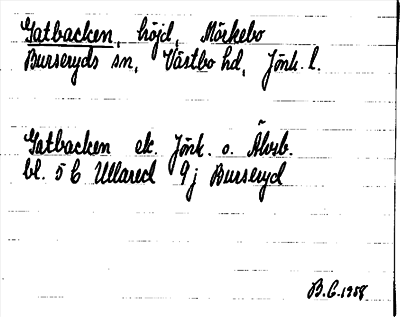 Gatbacken, höjd, Mörkebo
Burseryds sn, Västbo hd, Jönk. l.
Gatbacken ek. Jönk. o. Älvsb.
bl. 5 C Ullared 9 j Burseryd
B.C. 1958